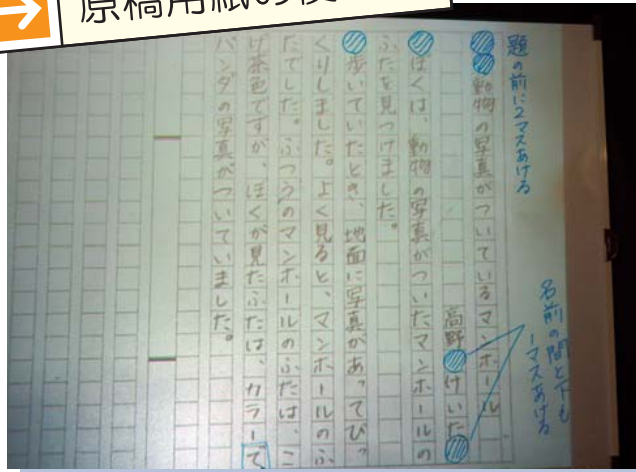 原稿用紙の使
題の前に2マスあける
名前の間と下も
1マスあける
動物の写真がついているマンホール
高野 けいた
ぼくは、動物の写真がついたマンホールの
ふたを見つけました。
歩いていたとき、地面に写真があってびっ
くりしました。よく見ると、マンホールのふ
たでした。ふつうのマンホールのふたは、こ
げ茶色ですが、ぼくが見たふたは、カラーで
パンダの写真がついていました。